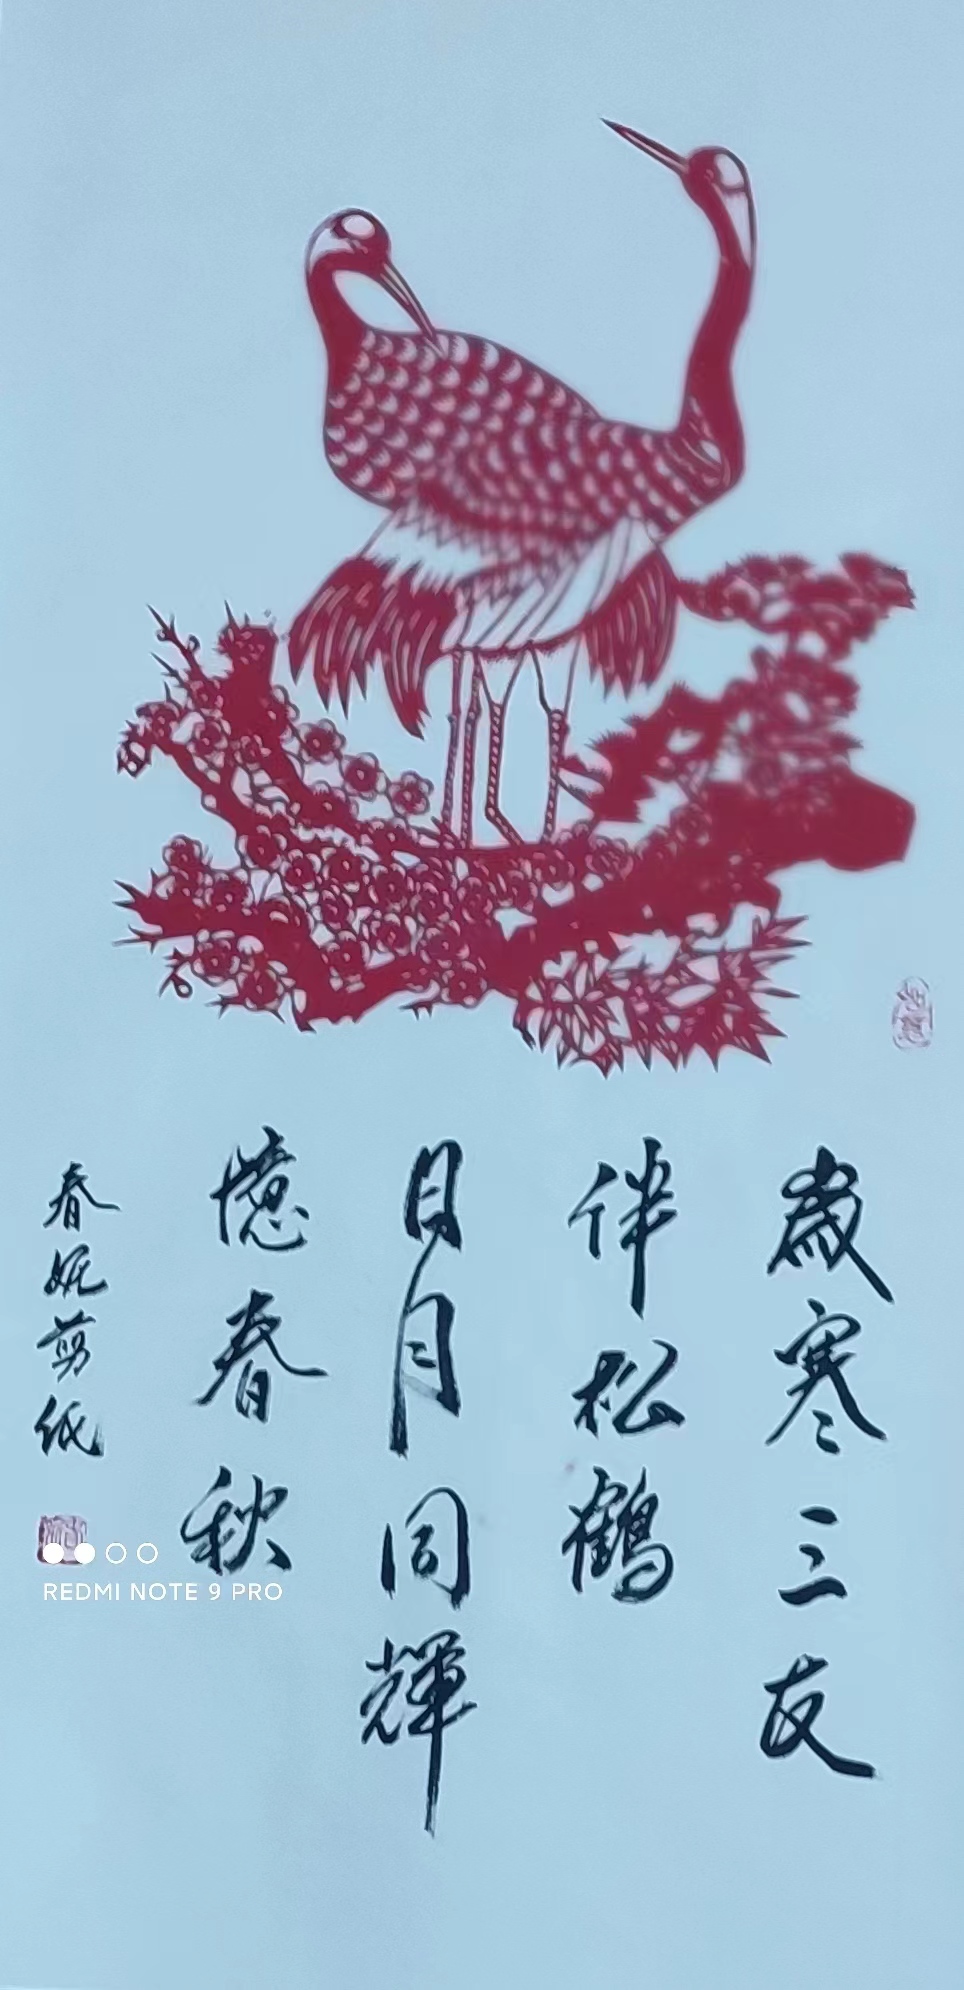 歲寒三友
伴松鶴
日月同輝
憶春秋
春妮剪紙
REDMI NOTE 9 PRO